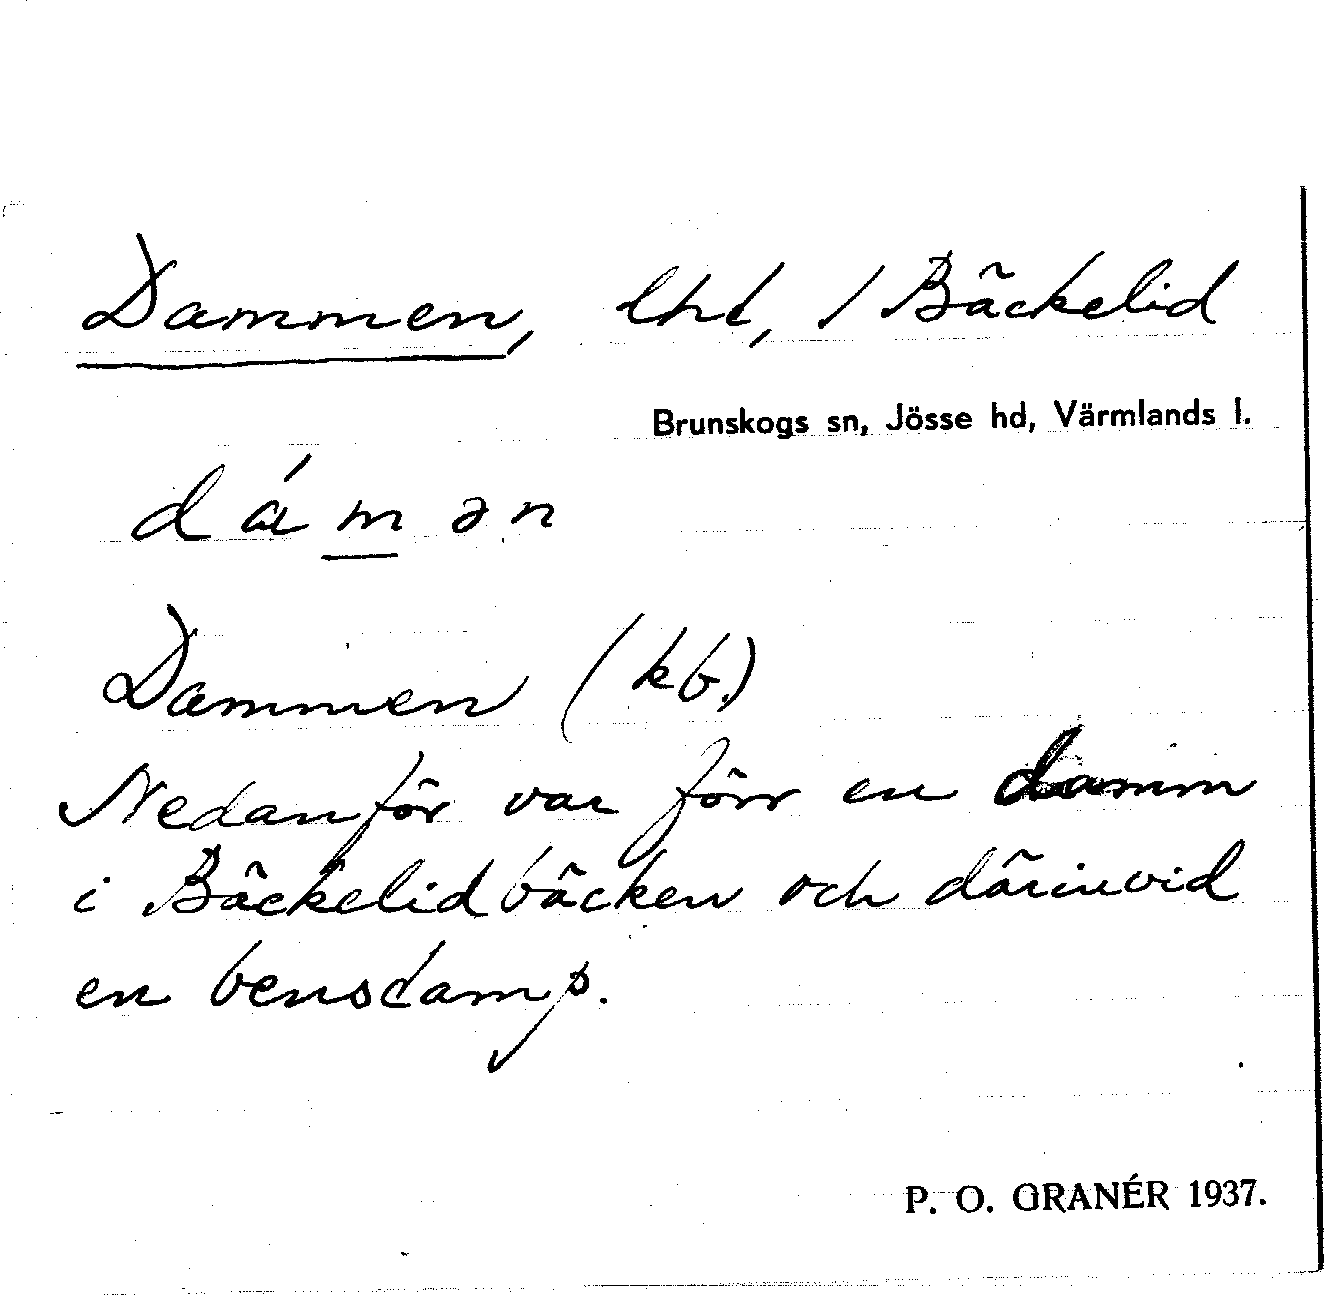 Dammen, lht, / Bäckelid
Brunskogs sn, Jösse hd, Värmlands l.
dámən
Dammen (kb.)
Nedanför var förr en damm
i Bäckelidbäcken och därinvid
en benstamp.
P. O. GRANÉR 1937.